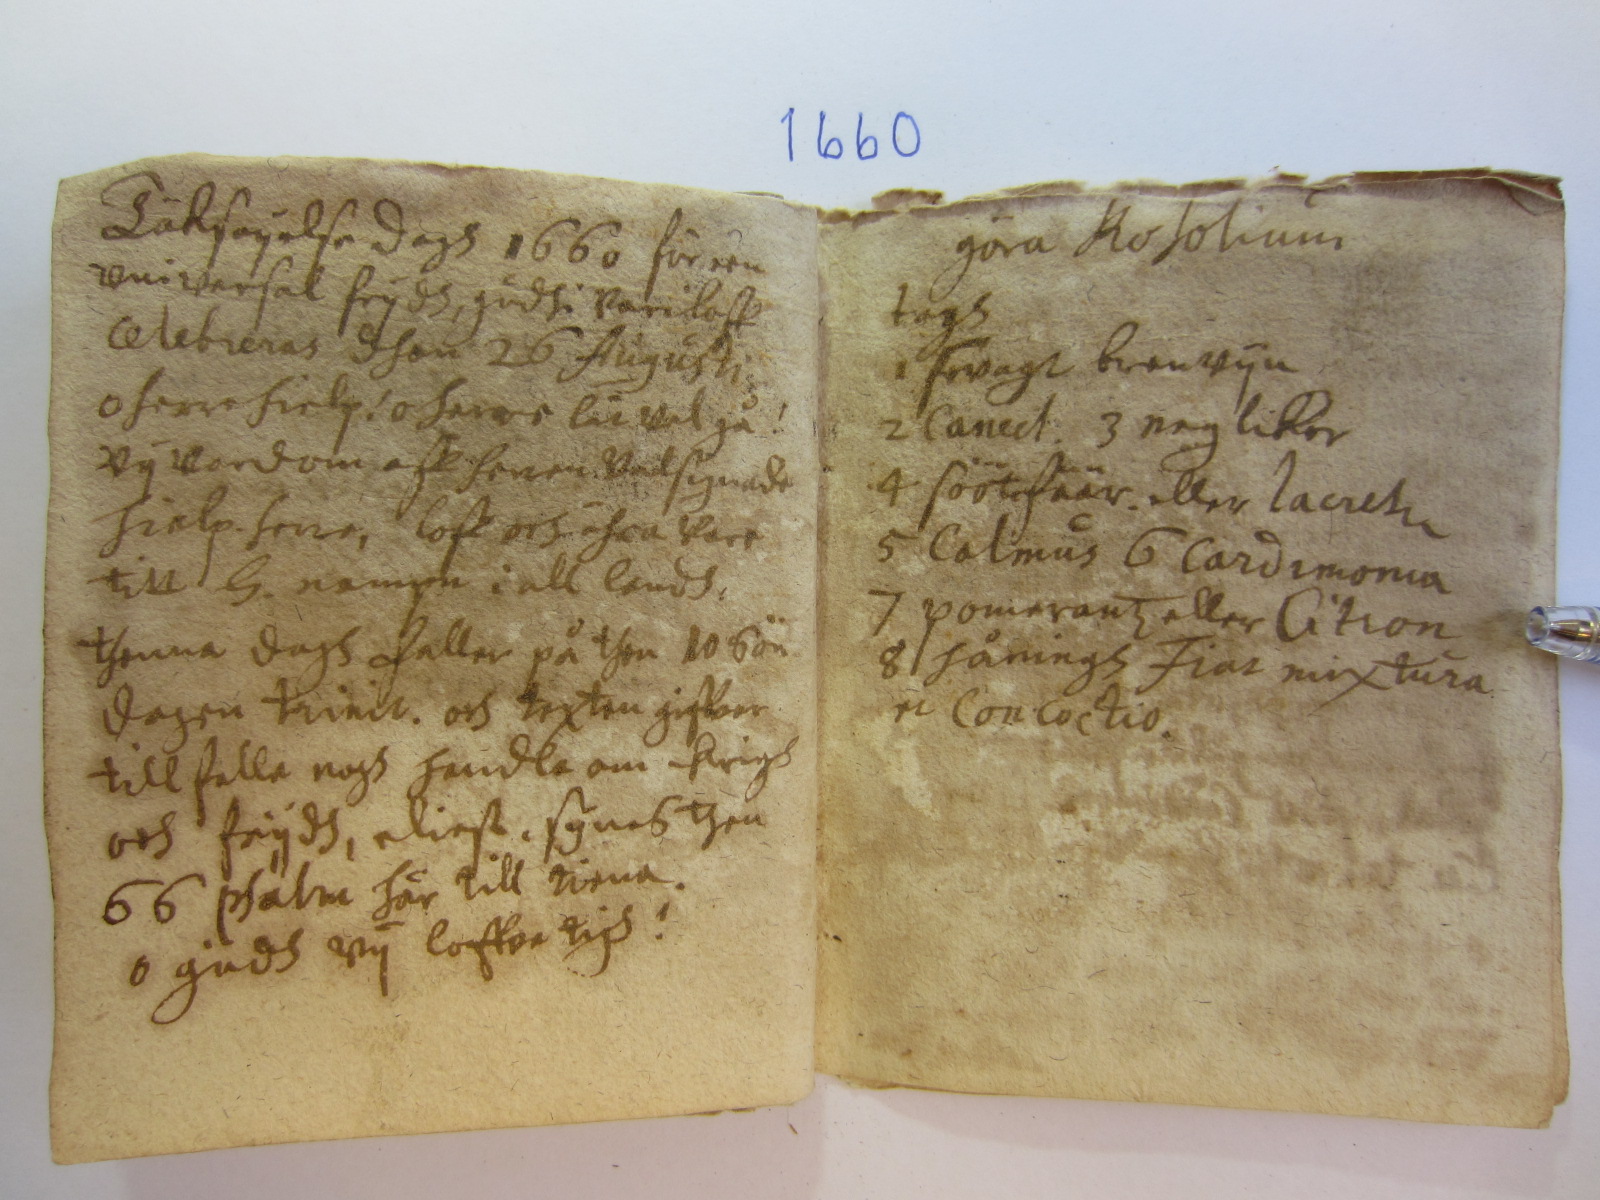 1660
Täksäyelse dagh 1660 för een
universal frijdh, gudhi vari loff
Celebreras dhen 26 Augusti
o herre hielp! o herre låt väl gå!
vij vardom aff herren välsignade
hielp herre, loff och ähra vare
titt H. nampn i all landh,
thenna dagh faller på then 10 Sön
dagen trinit. och texten gifver
tillfälle nogh handla om krigh
och frijdh, eliest synes then
66 psalm här till tiena.
o gudh vij loffve tigh!
göra Rosolium
tagh
1 brenvijn
2 Caneel. 3 neglikor
4 söött eller lacretz
5 Calmus 6 Cardimoma
7 pomerantz eller Citron
8 håningh Fiat mixtura
et Concoctio.